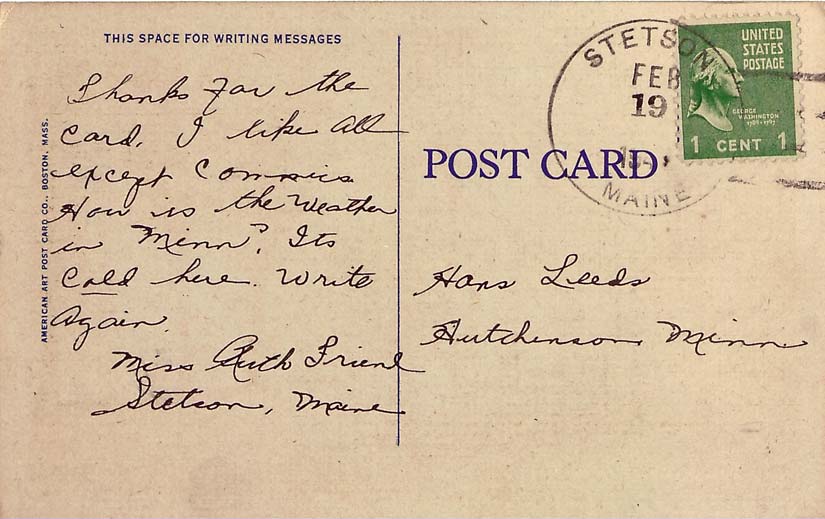 THIS SPACE FOR WRITING MESSAGES
Thanks for the
Card. I like all
except Commics
How is the Weather
in Minn? Its
Cold here. Write
Again.
Miss Ruth Friend
Stetson, Maine
AMERICAN ART POST CARD CO., BOSTON, MASS.
POST CARD
STETSON
FEB
19
MAINE
UNITED
STATES
POSTAGE
GEORGE
WASHINGTON
1789-1797
1 CENT 1
Hans Leeds
Hutchenson Minn.